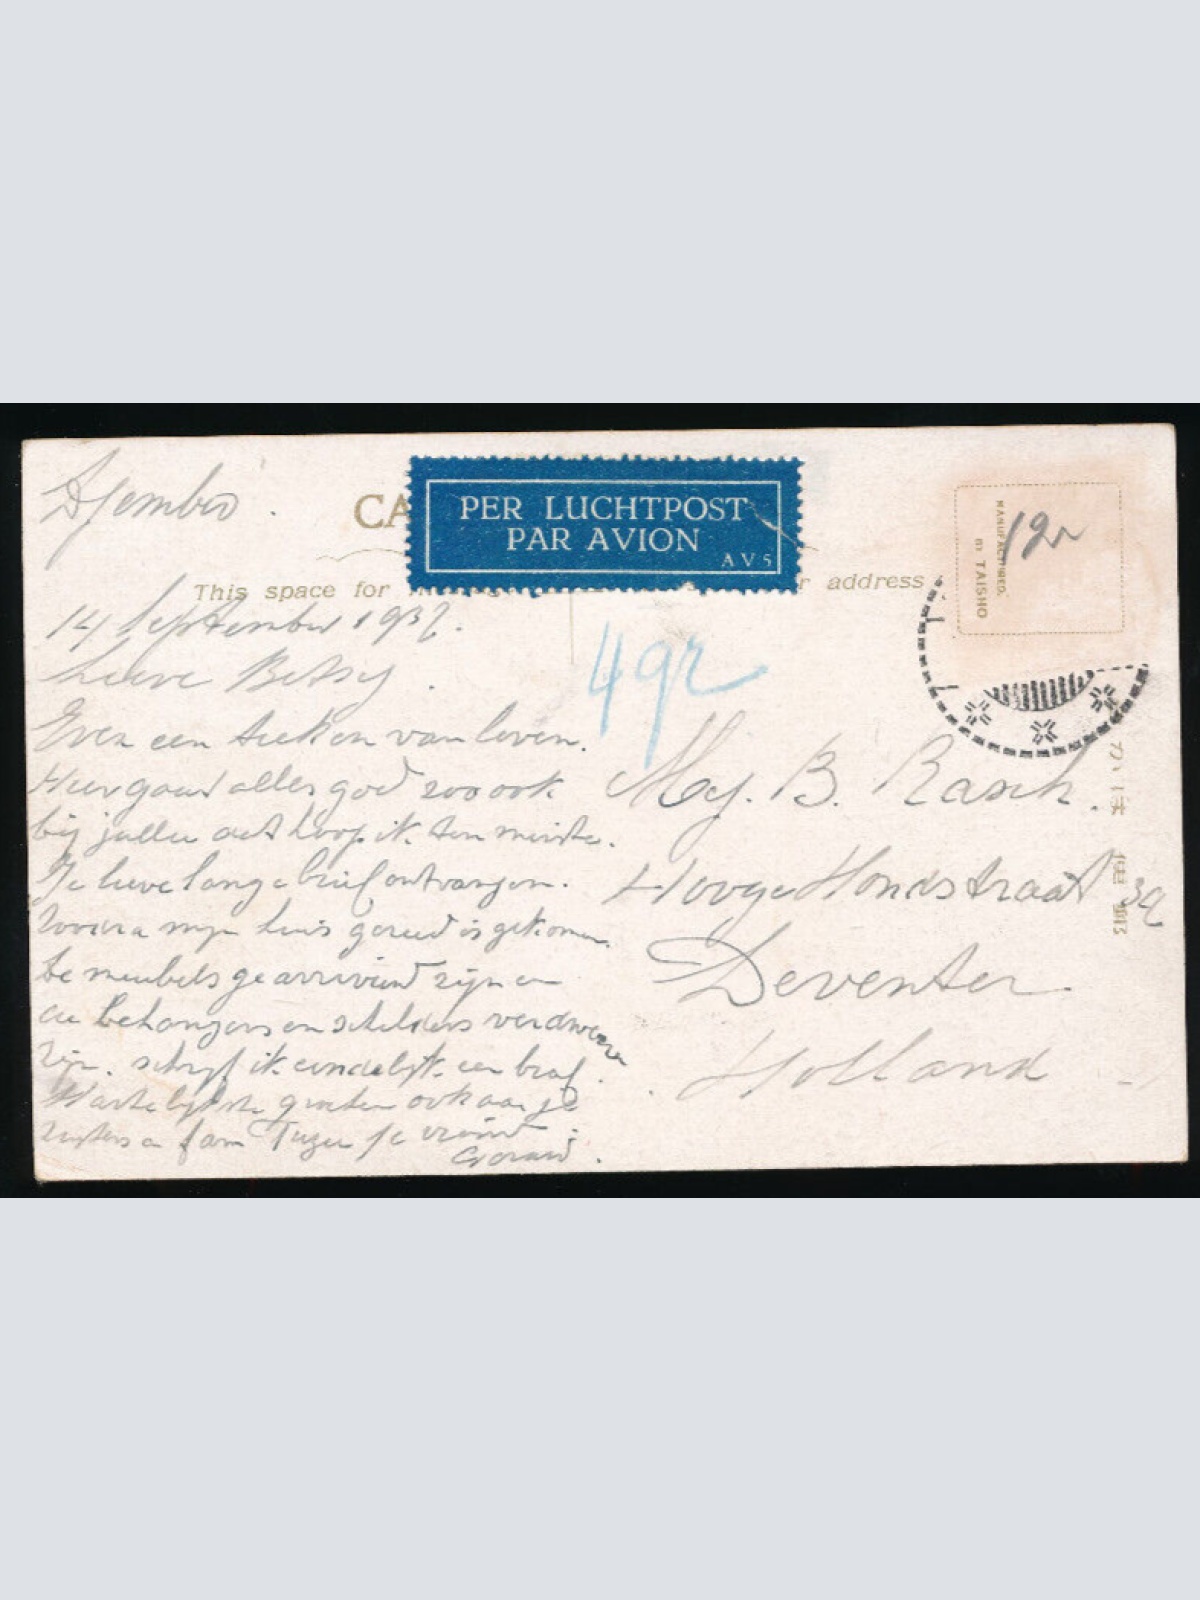 CA
PER LUCHTPOST
PAR AVION
AV5
This space for
address
MANUFACTURED.
BY TAISHO
12
14 September 1937.
492
Lieve Betsy.
Even een teeken van leven.
Hier gaat alles goed zoo ook
bij jullie dat hoop ik ten minste.
Je lieve lange brief ontvangen.
Zoodra mijn huis gereed is gekomen
de meubels gearriveerd zijn en
de behangers en schilders verdwenen
zijn. schrijf ik eindelijk een brief.
Hartelijkste groeten ook aan je
zusters en fam je vriend
Gerard.
Mej. B. Rasch.
Hooge Hondstraat 39
Deventer.
Holland